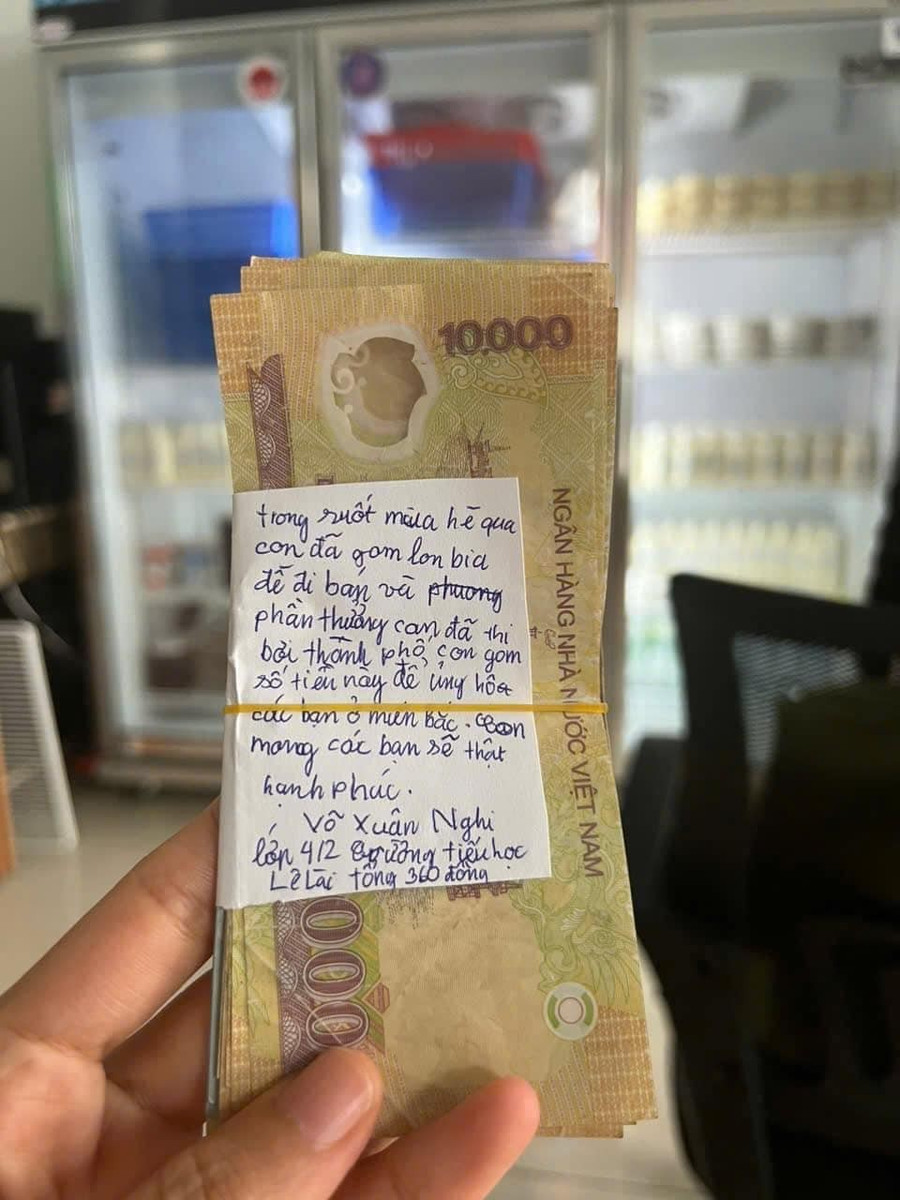 10.000
trong suốt mùa hè qua
con đã gom lon bia
để đi bán và phương
phần thưởng con đã thi
bơi thành phố, con gom
số tiền này để ủng hôa
các bạn ở miền Bắc. Con
mong các bạn sẽ thật
hạnh phúc.
Võ Xuân Nghi
lớp 4/2 trường tiểu học
Lê Lai tổng 360 đồng
NGÂN HÀNG NHÀ NƯỚC VIỆT NAM
000